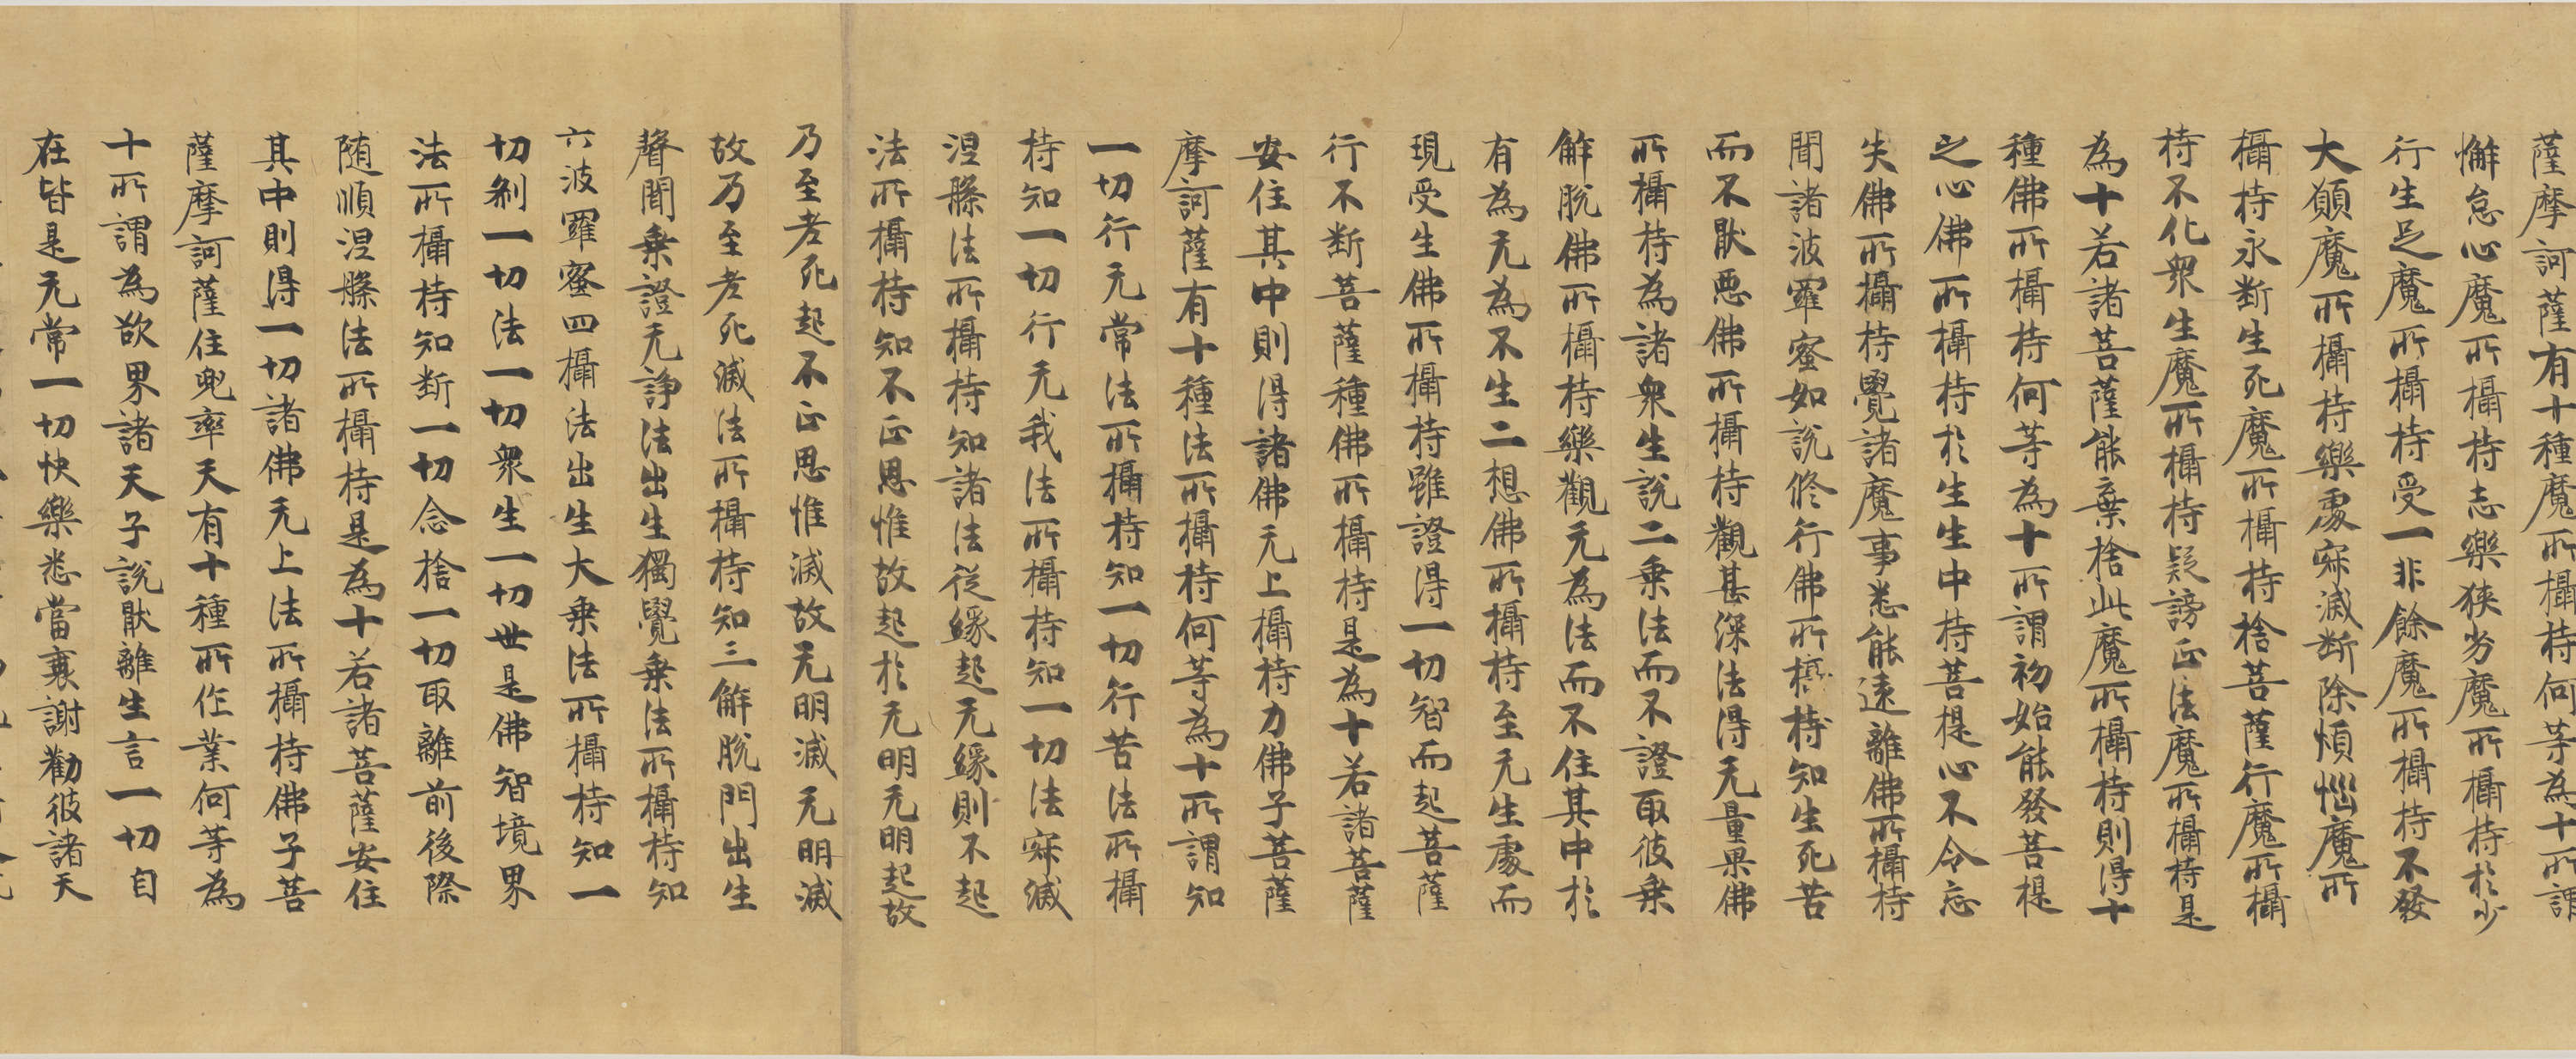 薩摩訶薩有十種魔所攝持何等為十所謂
懈怠心魔所攝持志樂狹劣魔所攝持於少
行生足魔所攝持受一非餘魔所攝持不發
大願魔所攝持樂處寂滅斷除煩惱魔所
攝持永斷生死魔所攝持捨菩薩行魔所攝
持不化衆生魔所攝持疑謗正法魔所攝持是
為十若諸菩薩能棄捨此魔所攝持則得十
種佛所攝持何等為十所謂初始能發菩提
之心佛所攝持於生生中持菩提心不令忘
失佛所攝持覺諸魔事悉能遠離佛所攝持
聞諸波羅蜜如說修行佛所攝持知生死苦
而不猒惡佛所攝持觀甚深法得无量果佛
所攝持為諸衆生說二乗法而不證取彼乗
解脫佛所攝持樂觀无為法而不住其中於
有為无為不生二想佛所攝持至无生處而
現受生佛所攝持雖證得一切智而起菩薩
行不斷菩薩種佛所攝持是為十若諸菩薩
安住其中則得諸佛无上攝持力佛子菩薩
摩訶薩有十種法所攝持何等為十所謂知
一切行无常法所攝持知一切行苦法所攝
持知一切行无我法所攝持知一切法寂滅
涅槃法所攝持知諸法從緣起无緣則不起
法所攝持知不正思惟故起於无明无明起故
乃至老死起不正思惟滅故无明滅无明滅
故乃至老死滅法所攝持知三解脫門出生
聲聞乗證无諍法出生獨覺乗法所攝持知
六波羅蜜四攝法出生大乗法所攝持知一
切刹一切法一切衆生一切世是佛智境界
法所攝持知斷一切念捨一切取離前後際
随順涅槃法所攝持是為十若諸菩薩安住
其中則得一切諸佛无上法所攝持佛子菩
薩摩訶薩住兜率天有十種所作業何等為
十所謂為欲界諸天子說猒離生言一切自
在皆是无常一切快樂悉當衰謝勸彼諸天